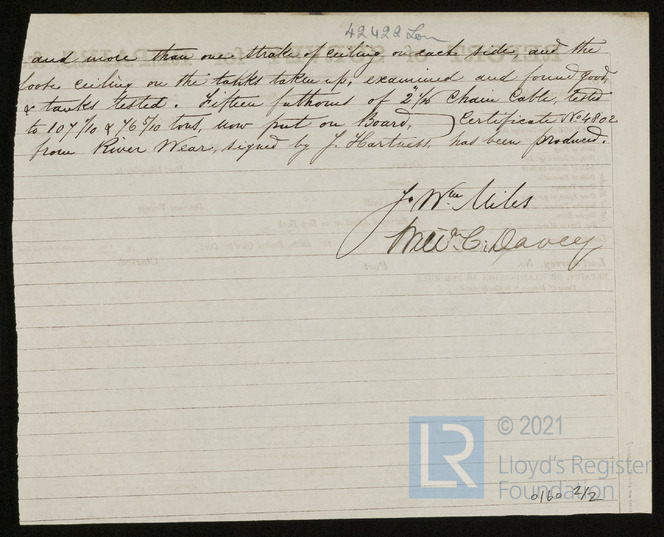 42422 Lon
and more than one strake of ceiling on each side and the
loose ceiling on the tanks taken up, examined and found good,
& tanks tested. Fifteen fathoms of 2" 1/16 Chain Cable, tested
to 107 7/10 & 76 5/10 tons, now put on Board, Certificate No 4802
from River Wear, signed by J. Hartness, has been produced.
J. Wm Miles
Wm C. Davey
LR
© 2021
Lloyd's Register
Foundation
0160 2/2